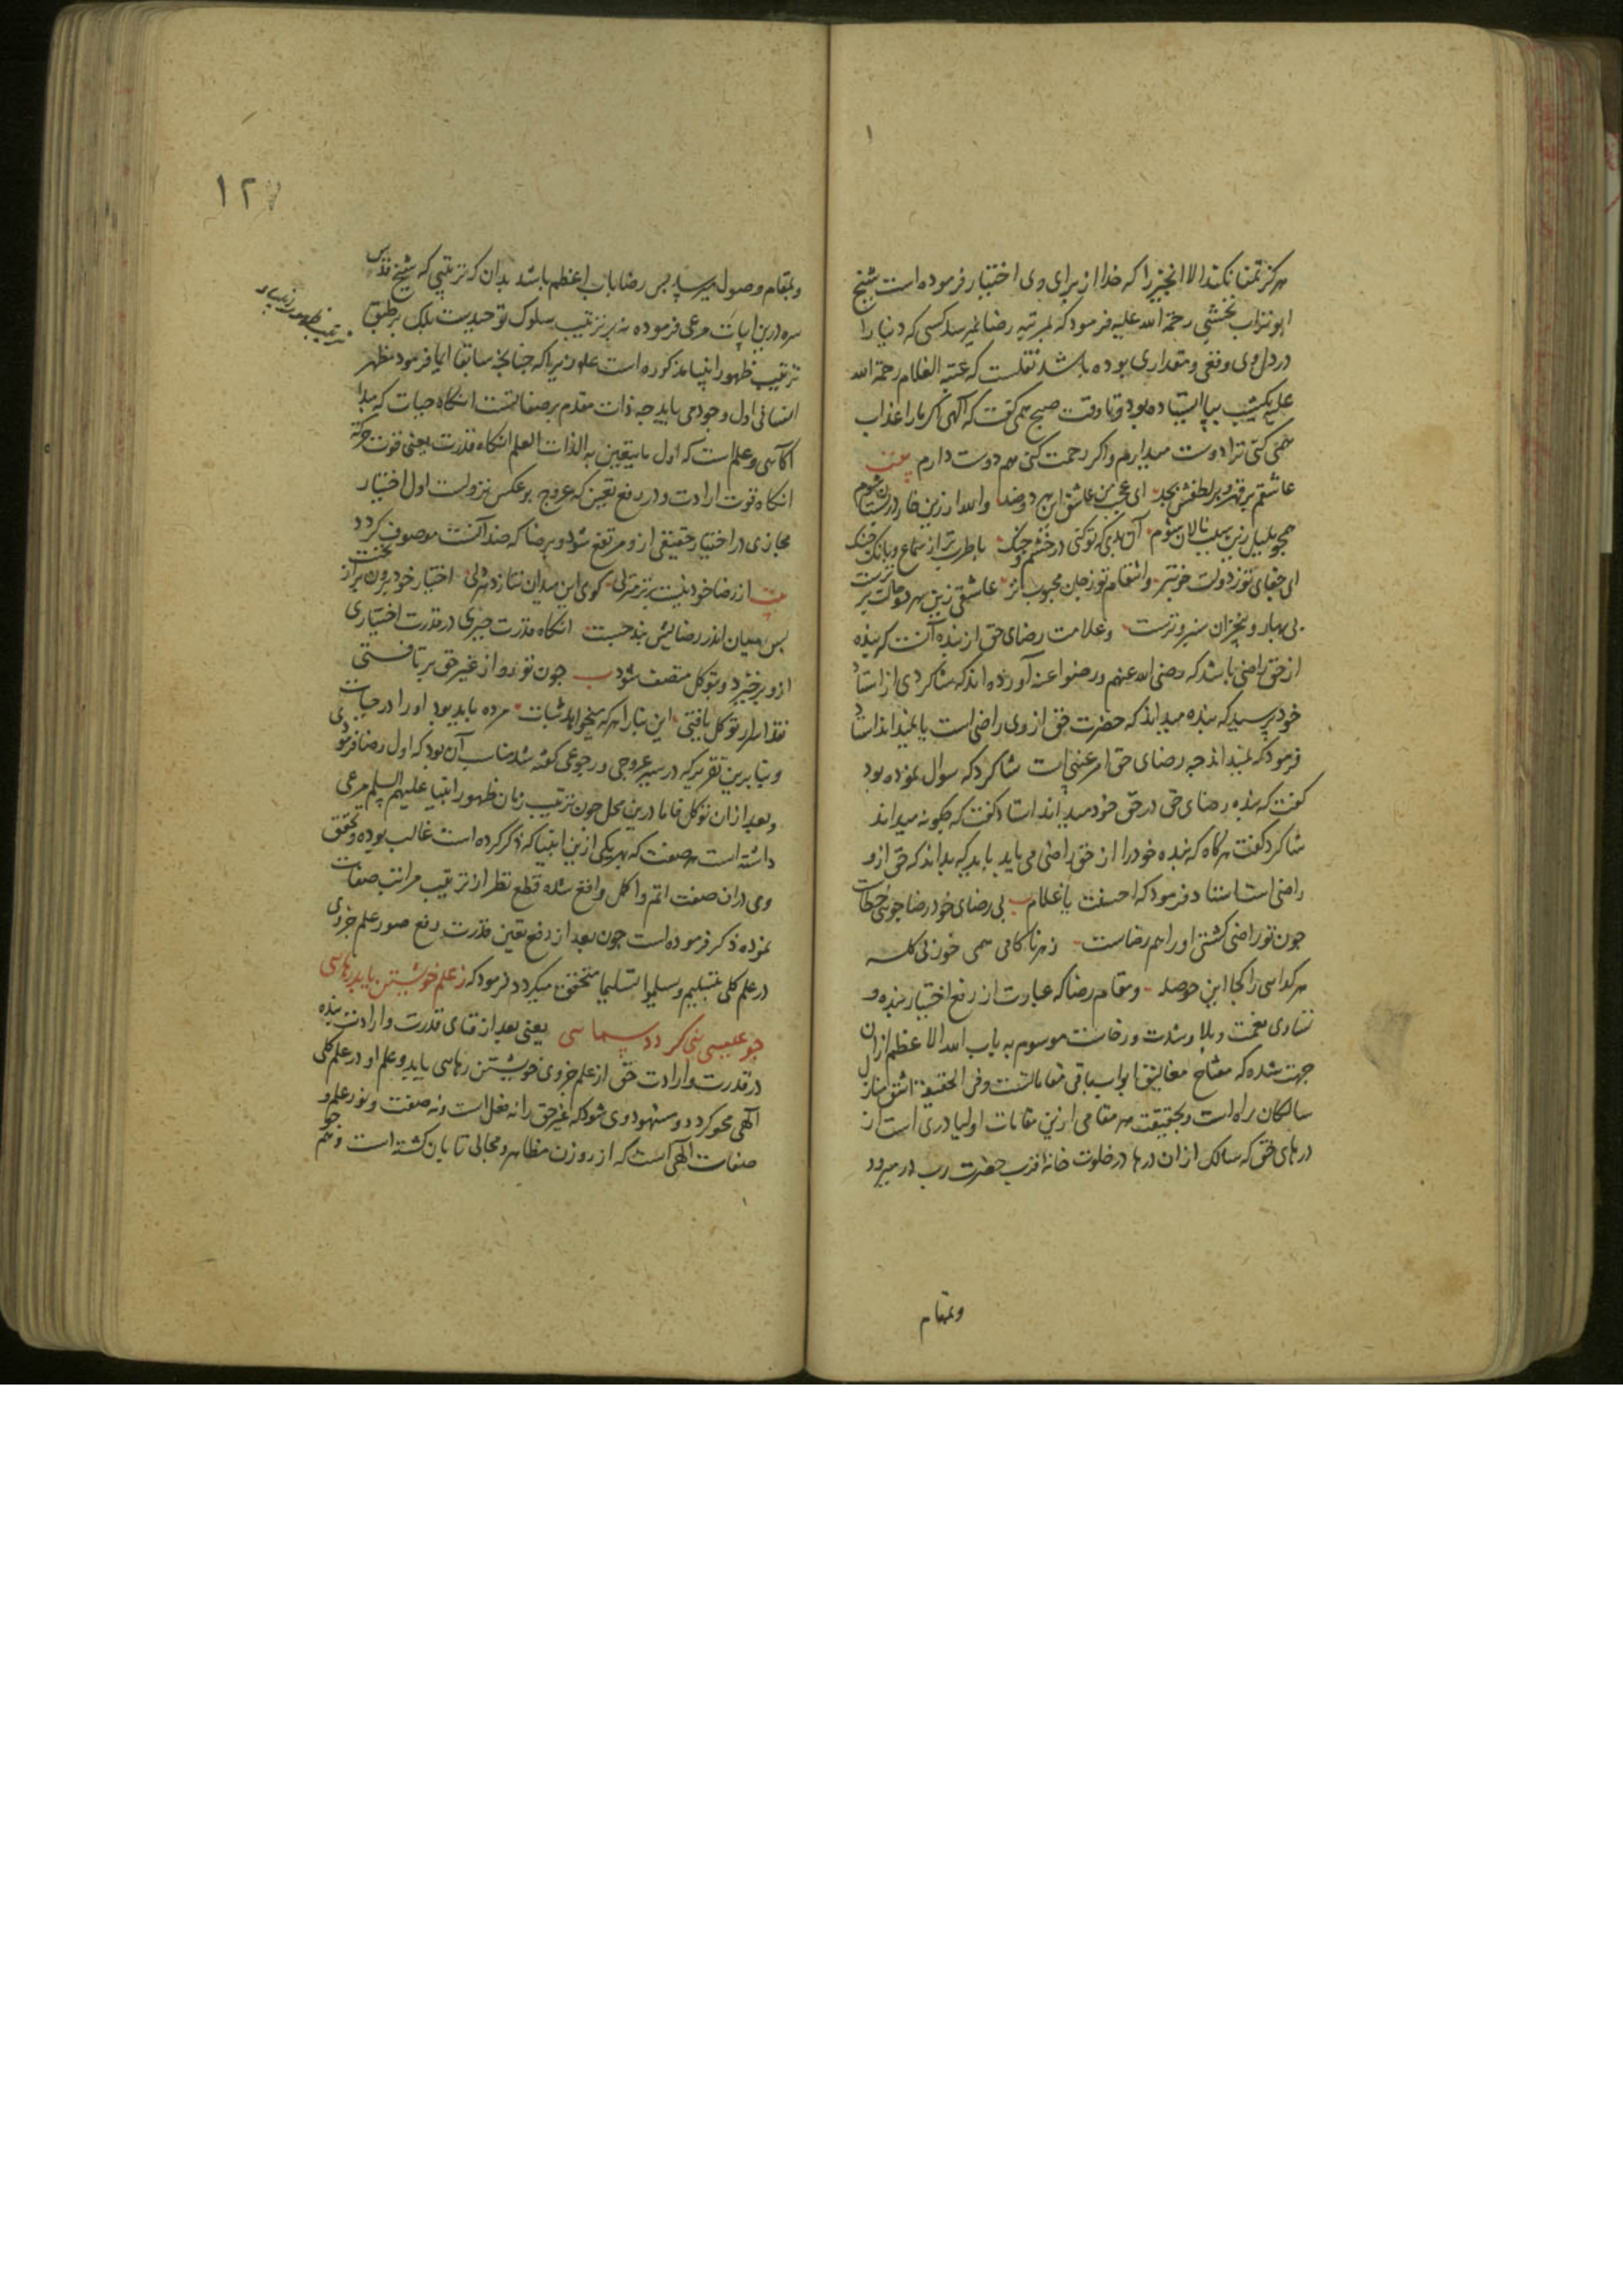 هرگز تمنا نکند الا انچیز را که خدا از برای وی اختیار فرموده است شیخ
ابوتراب نخشبی رحمة الله علیه فرمود که بمرتبه رضا نمیرسد کسی که دنیا را
در دل وی وقعی و مقداری بوده باشد نقلست که عتبة الغلام رحمة الله
علیه یکشب بپا ایستاده بود و تا وقت صبح همی گفت که الهی اگر مرا عذاب
همی کنی ترا دوست میدارم و اگر رحمت کنی هم دوست دارم
عاشقم بر قهر و بر لطفش بجد ای عجب من عاشق این هر دو ضد والله ار زین خار در بستان شوم
همچو بلبل زین سبب نالان شوم آن بدی که تو کنی در خشم و جنگ با طرب تر از سماع و بانگ چنگ
ای جفای تو ز دولت خوبتر وانتقام تو ز جان محبوب تر عاشقی زین هر دو حالت برترست
بی بهار و بی خزان سبز و ترست وعلامت رضای حق از بنده آنست که بنده
از حق راضی باشد که رضی الله عنهم ورضوا عنه آورده اند که شاکردی از استاد
خود پرسید که بنده میداند که حضرت حق از وی راضی است یا نمیداند استاد
فرمود که نمیداند چه رضای حق امر غیبی است شاکرد که سوال نموده بود
گفت که بنده رضای حق در حق خود میداند استاد گفت که چکونه میداند
شاکرد گفت هرگاه که بنده خود را از حق راضی می یابد باید که بداند که حق ازو
راضی است استاد فرمود که احسنت یا غلام بی رضای خود رضا جوئی خطاست
چون تو راضی گشتی او را هم رضاست زهر ناکامی همی خور بی گله
هر گدایی را کجا این حوصله ومقام رضا که عبارت از رفع اختیار بنده و
تساوی نعمت و بلا و شدت و رخاست موسوم به باب الله الاعظم ازان
جهت شده که مفتاح مغالیق ابواب باقی مقاماتست وفی الحقیقة اشق منازل
سالکان راه است وبحقیقت هر مقامی ازین مقامات اولیا دری است از
درهای حق که سالک ازان درها در خلوت خانه اقرب حضرت رب در میرود
وبمقام
۱۲۷
وبمقام وصول میرسد پس رضا باب اعظم باشد بدان که ترتیبی که شیخ قدس
سره درین ابیات مرعی فرموده نه بر ترتیب سلوک توحیدست بلک بر طبق
ترتیب ظهور انبیاء مذکوره است علیهم زیرا که چنانچه سابقا ایما فرمود مظهر
انسانی اول وجود می یابد چه ذات مقدم بر صفاتست انگاه حیات که مبدا
آکاهی وعلم است که اول ما یتعین به الذات العلم انگاه قدرت یعنی قوت حرکة
انگاه قوت ارادت و در رفع تعین که عروج بر عکس نزولست اول اختیار
مجازی در اختیار حقیقی ازو مرتفع شود وبرضا که ضد آنست موصوف کردد
از رضا خود نیست برتر منزلی کوی این میدان نتازد هر دلی اختیار خود برون بر از نخست
پس میان اندر رضایش بند چست انگاه قدرت جبری در قدرت اختیاری
ازو برخیزد وبتوکل متصف شود چون تو رو از غیر حق بر تافتی
نقد اسرار توکل یافتی این بنا را هر که میخواهد ثبات مرده باید بود او را در حیات
وبنا برین تقریر که در سیر عروجی و رجوعی گفته شد مناسب آن بود که اول رضا فرمودی
وبعد ازان توکل فاما درین محل چون ترتیب زمان ظهور انبیا علیهم السلم مرعی
داشته است هر صفت که بهر یکی ازین انبیا که ذکر کرده است غالب بوده وتحقق
وی دران صفت اتم واکمل واقع شده قطع نظر از ترتیب مراتب صفات
نموده ذکر فرموده است چون بعد از رفع تعین قدرت رفع صور علم جزوی
در علم کلی بتسلیم وسلموا تسلیما متحقق میکردد فرمود که ز علم خویشتن یابد رهایی
چو عیسی نبی کردد سمایی یعنی بعد از فنای قدرت وارادت بنده
در قدرت وارادت حق از علم جزوی خویشتن رهایی یابد وعلم او در علم کلی
الهی محو کردد ومشهود وی شود که غیر حق را نه فعل است ونه صفت ونور علم و
صفات الهی است که از روزن مظاهر ومجالی تابان کشته است وهم
ترتیب ظهور انبیا